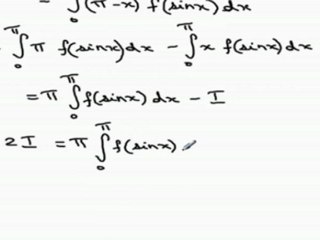 = ∫₀^π (π-x) f(sinx) dx
- ∫₀^π π f(sinx) dx - ∫₀^π x f(sinx) dx
= π ∫₀^π f(sinx) dx - I
2I = π ∫₀^π f(sinx)